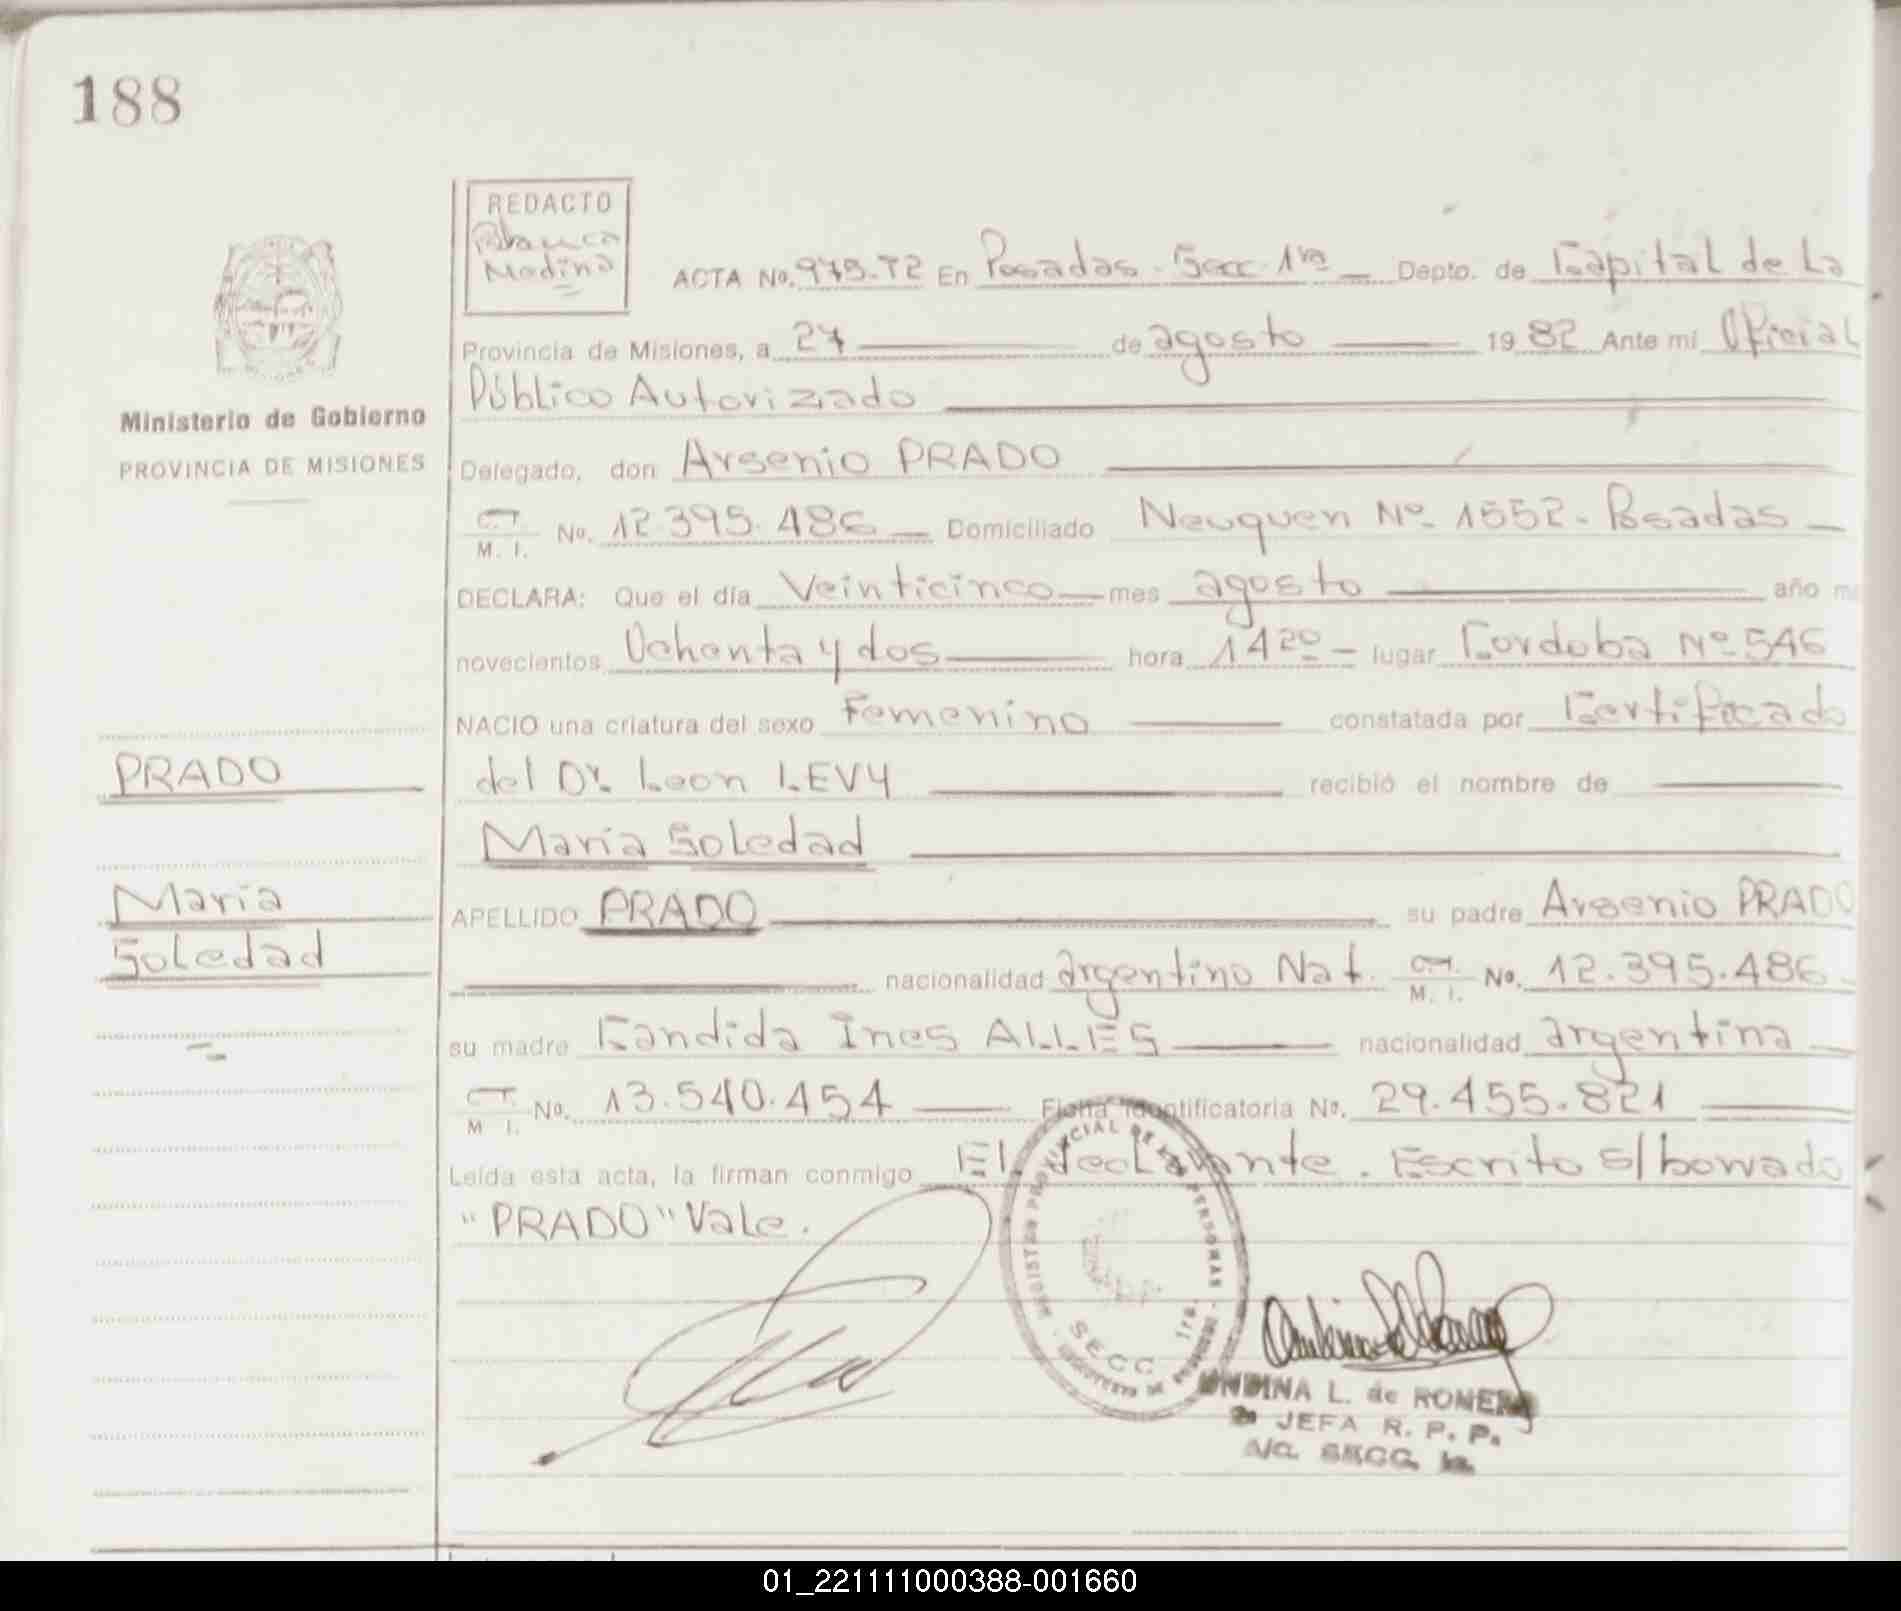 188
REDACTO
Blanca
Medina
ACTA No. 975-T2 En Posadas-Secc. 1ra Depto. de Capital de La
Provincia de Misiones, a 27 de agosto 1982 Ante mí Oficial
Público Autorizado
Ministerio de Gobierno
PROVINCIA DE MISIONES
Delegado, don Arsenio PRADO
M. I. No. 12.395.486 Domiciliado Neuquen Nº 1552- Posadas
DECLARA: Que el día Veinticinco mes agosto año
novecientos Ochenta y dos hora 14 20 lugar Cordoba Nº 546
NACIO una criatura del sexo Femenino constatada por Certificado
PRADO
del Dr. Leon LEVY recibió el nombre de
María Soledad
María
Soledad
APELLIDO PRADO su padre Arsenio PRADO
nacionalidad argentino Nat. M. I. No. 12.395.486
su madre Candida Ines ALLES nacionalidad argentina
M I. No. 13.540.454 Ficha Identificatoria No. 29.455.821
Leída esta acta, la firman conmigo El declarante. Escrito s/borrado
"PRADO" Vale.
REGISTRO PROVINCIAL DE LAS PERSONAS
SECC 1ra.
UNDINA L. de ROMERO
JEFA R. P. P.
A/C. SECC. 1a.
01_221111000388-001660